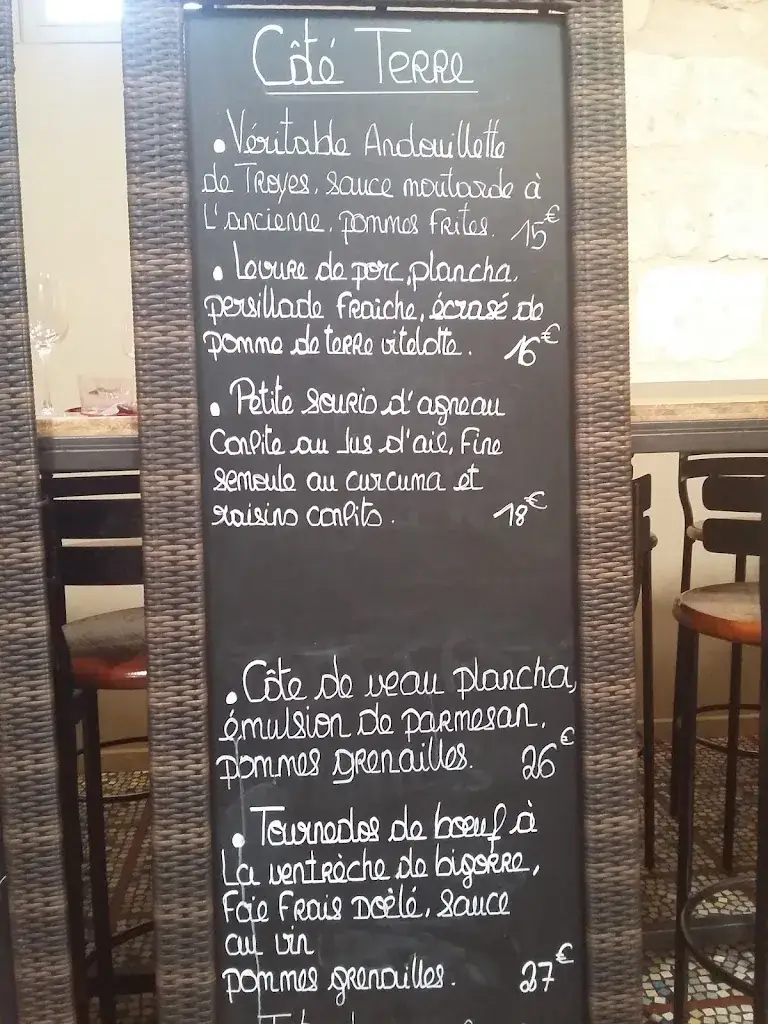 Côté Terre
• Véritable Andouillette
de Troyes, sauce moutarde à
L'ancienne, pommes Frites. 15€
• Levure de porc, plancha,
persillade Fraîche, écrasé de
pomme de terre vitelotte. 16€
• Petite souris d'agneau
confite au Jus d'ail, Fine
semoule au curcuma et
raisins confits. 18€
• Côte de veau plancha,
émulsion de parmesan,
pommes grenailles. 26€
• Tournedos de boeuf à
La ventrèche de bigorre,
Foie Frais poêlé, sauce
au vin
pommes grenailles. 27€